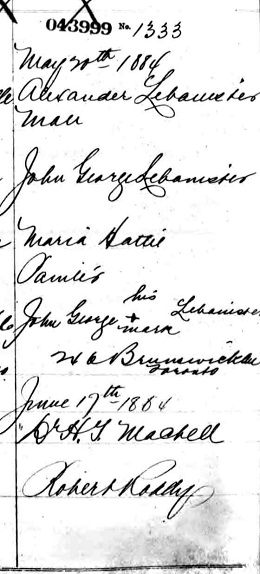 043999 No. 1333
May 20th 1884
Alexander Lebanister
Male
John George Lebanister
Maria Hattie
John George his + mark Lebanister
246 Brunswick Av
Toronto
June 17th 1884
Dr H. T. Machell
Robert Roddy